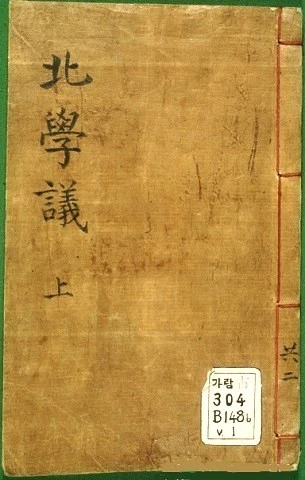 北學議
上
共二
가람 古
304
B148b
v.1